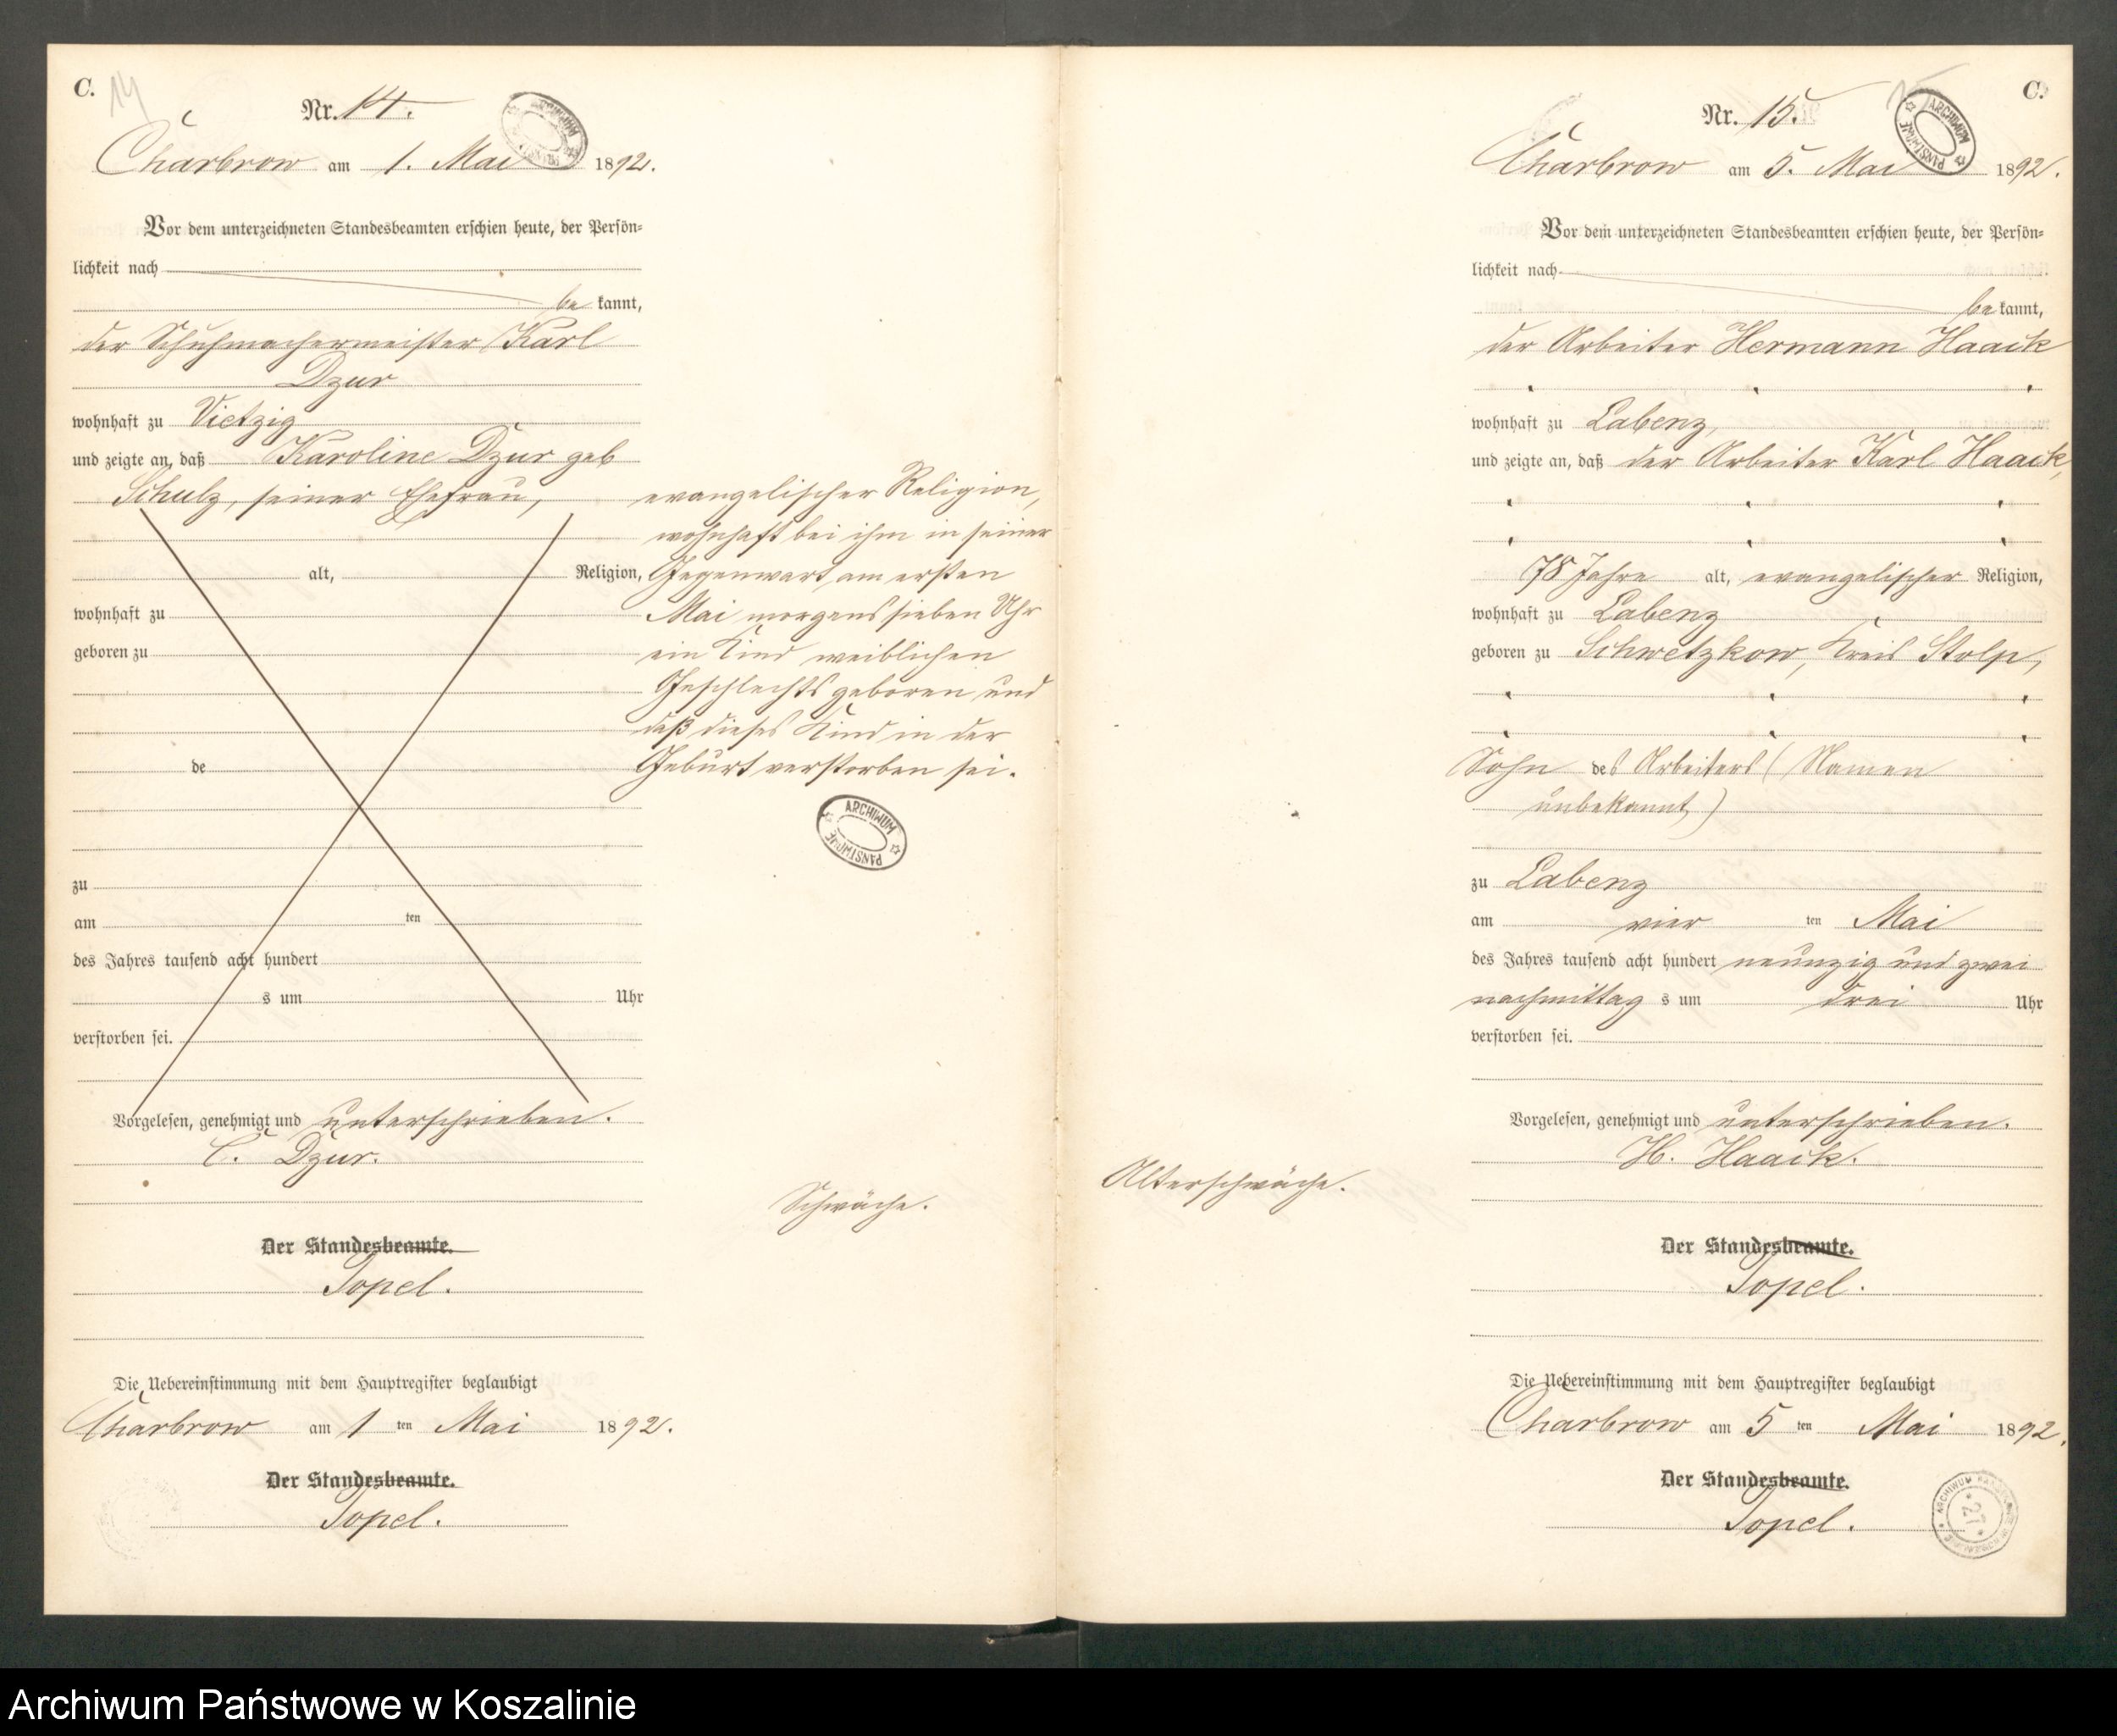 C.
14
Nr. 14.
ARCHIWUM PAŃSTWOWE
Charbrow am 1. Mai 1892.
Vor dem unterzeichneten Standesbeamten erschien heute, der Persön=
lichkeit nach
be kannt,
der Schuhmachermeister Karl
Dzur
wohnhaft zu Vietzig
und zeigte an, daß Karoline Dzur geb
Schulz, seiner Ehefrau,
alt, Religion,
wohnhaft zu
geboren zu
de
zu
am ten
des Jahres tausend acht hundert
s um Uhr
verstorben sei.
evangelischer Religion,
wohnhaft bei ihm in seiner
Gegenwart, am ersten
Mai morgens sieben Uhr
ein Kind weiblichen
Geschlechts geboren und
daß dieses Kind in der
Geburt verstorben sei.
ARCHIWUM PAŃSTWOWE
Vorgelesen, genehmigt und unterschrieben.
C. Dzur.
Schwäche.
Der Standesbeamte.
Topel.
Die Uebereinstimmung mit dem Hauptregister beglaubigt
Charbrow am 1 ten Mai 1892.
Der Standesbeamte.
Topel.
C.
Nr. 15.
ARCHIWUM PAŃSTWOWE
Charbrow am 5. Mai 1892.
Vor dem unterzeichneten Standesbeamten erschien heute, der Persön=
lichkeit nach
be kannt,
der Arbeiter Hermann Haack
wohnhaft zu Labenz,
und zeigte an, daß der Arbeiter Karl Haack,
78 Jahre alt, evangelischer Religion,
wohnhaft zu Labenz
geboren zu Schwetzkow, Kreis Stolp,
Sohn des Arbeiters (Namen
unbekannt)
zu Labenz
am vier ten Mai
des Jahres tausend acht hundert neunzig und zwei
nachmittag s um drei Uhr
verstorben sei.
Vorgelesen, genehmigt und unterschrieben.
H. Haack.
Alterschwäche.
Der Standesbeamte.
Topel.
Die Uebereinstimmung mit dem Hauptregister beglaubigt
Charbrow am 5 ten Mai 1892.
Der Standesbeamte.
Topel.
Archiwum Państwowe w Koszalinie